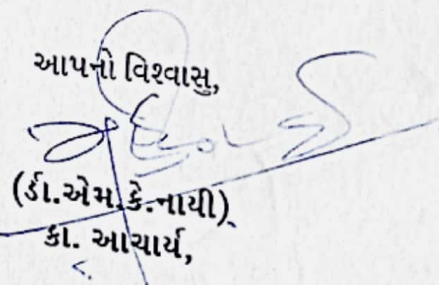 આપનો વિશ્વાસુ,
(ર્ડા.એમ.કે.નાયી)
કા. આચાર્ય,